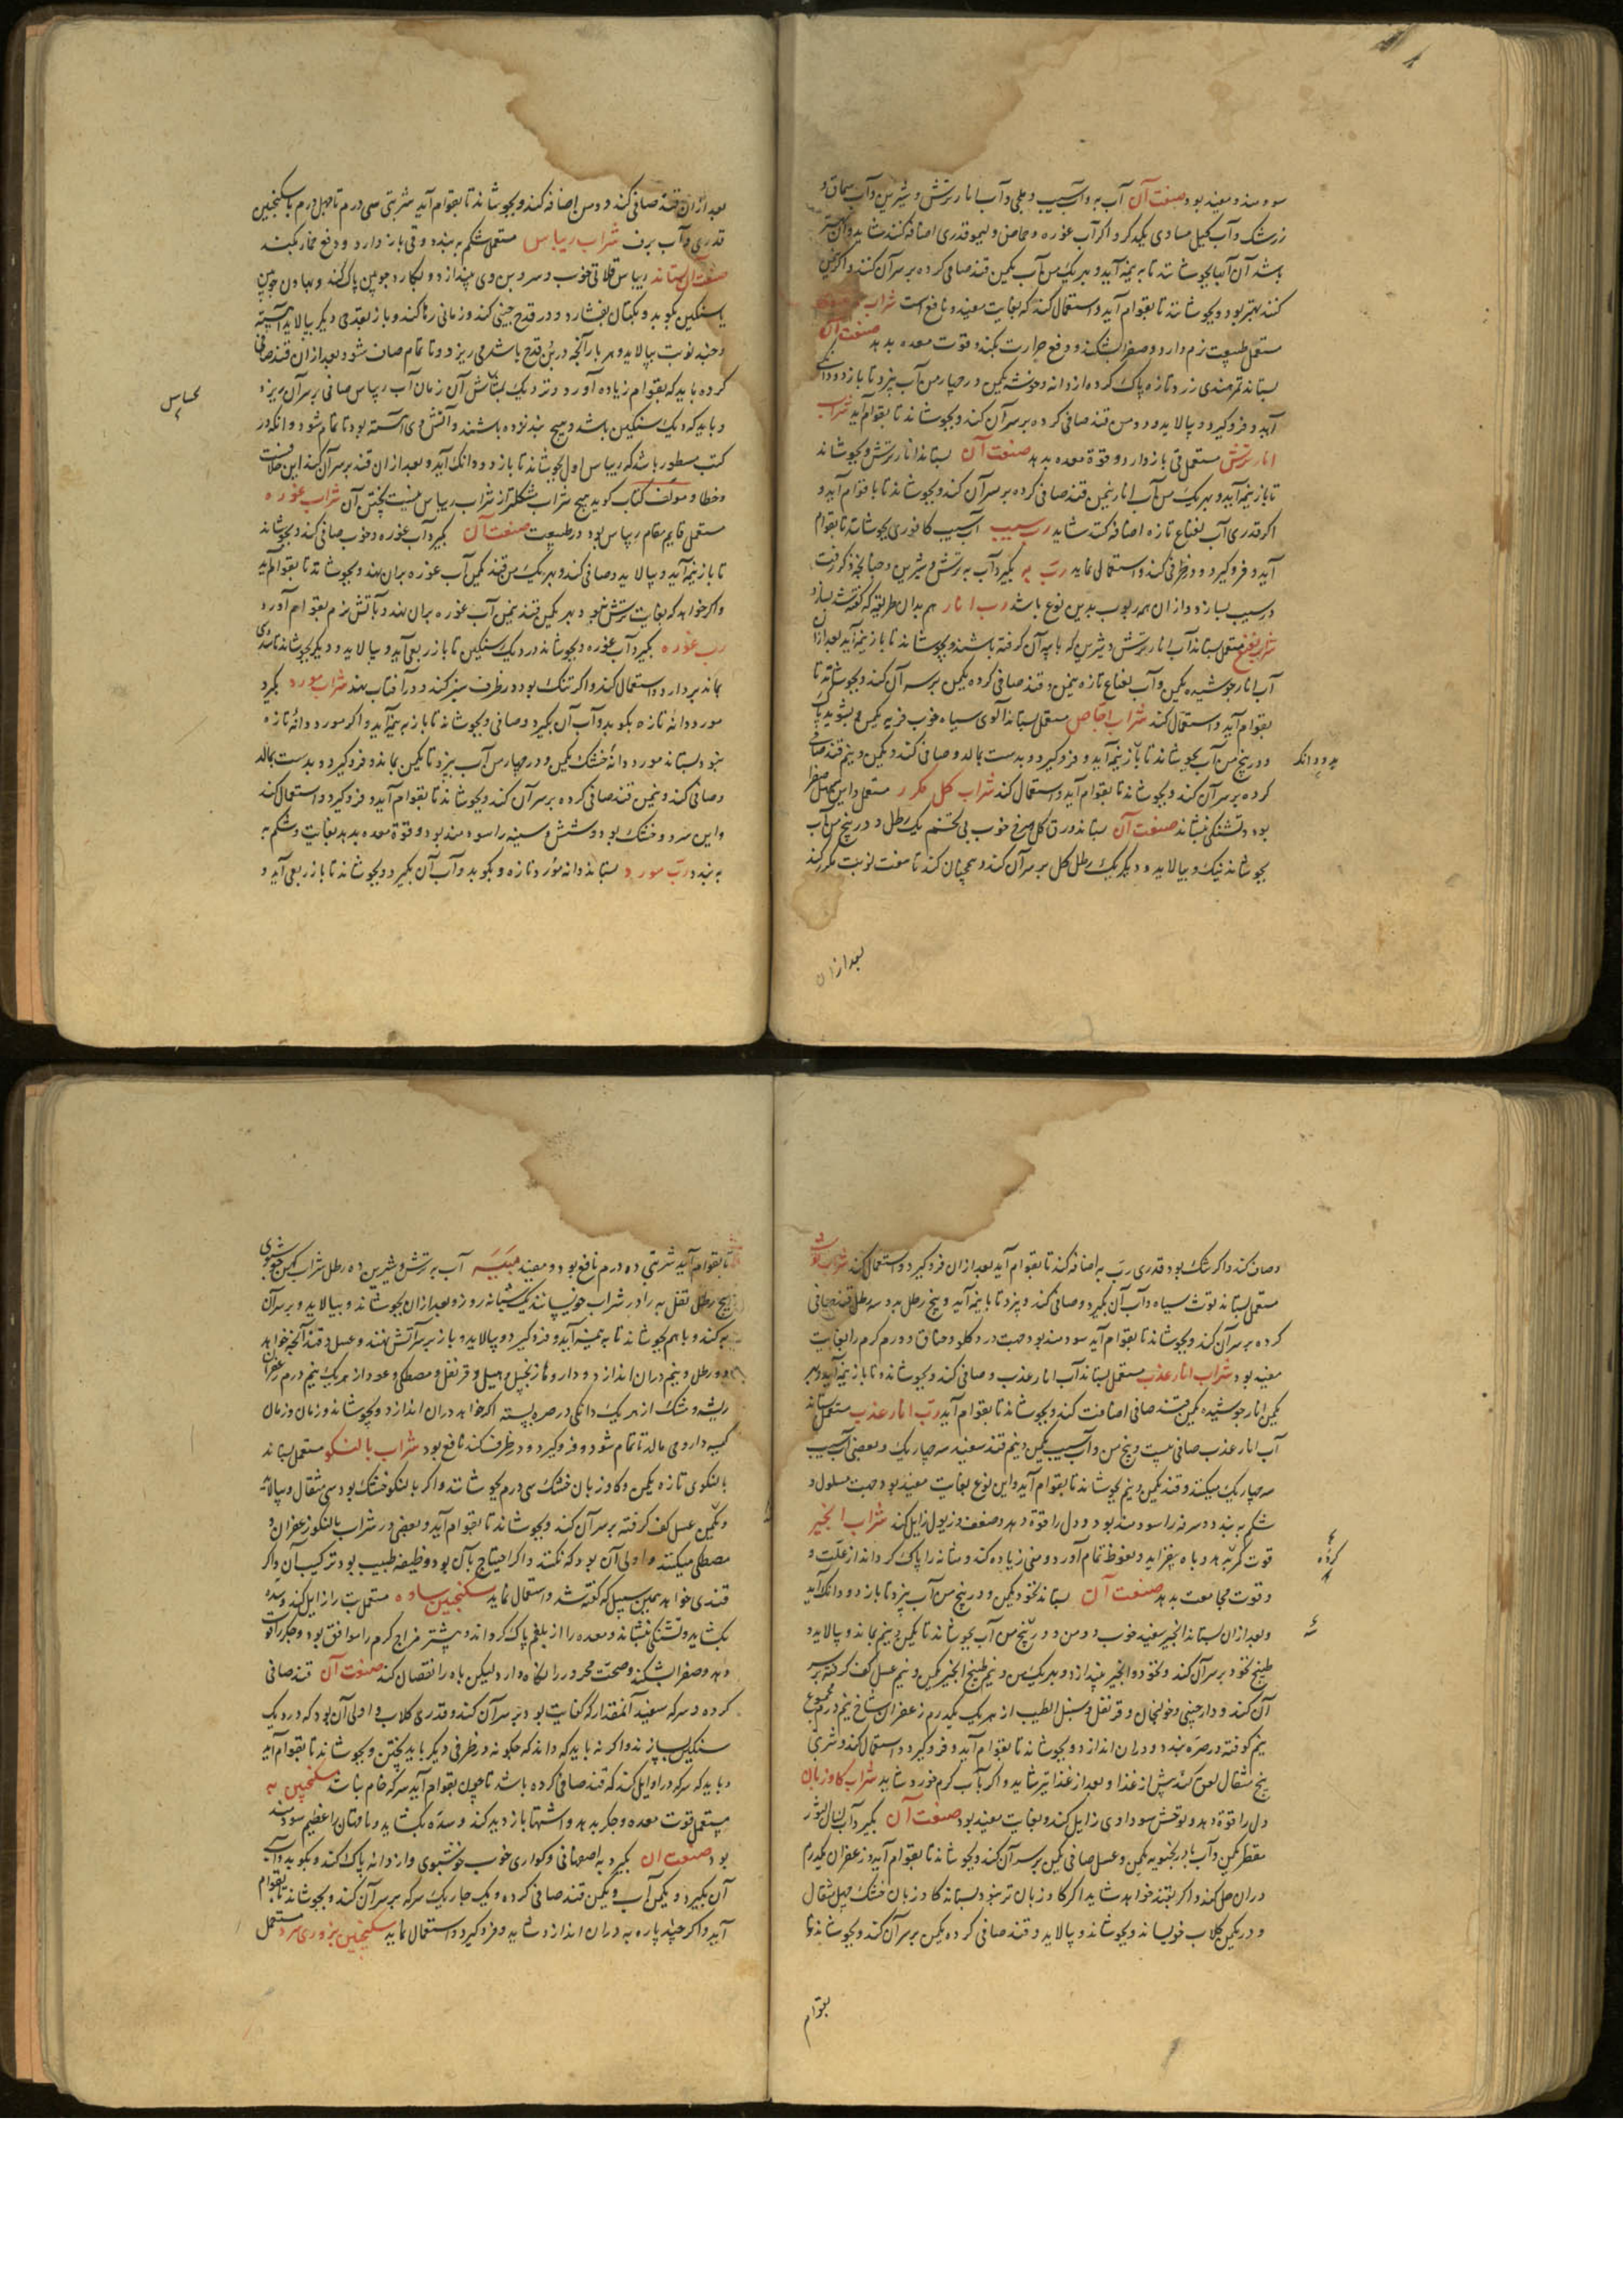 سودمند و مفید بود صنعت آن آب به و آب سیب و بهی و آب انار ترش و شیرین و آب سماق و
زرشک و آب کیل مساوی یکدیکر و اکر آب غوره و حماض و لیمو قدری اضافه کنند شاید و آن
باشد آن آبها بجوشاند تا به نیمه آید و بهر یک من آب یکمن قند صافی کرده بر سر آن کنند و اکر
کنند بهتر بود و بجوشاند تا بقوام آید و استعمال کند که بغایت مفید و نافع است شراب
مستعمل طبیعت نرم دارد و صفرا بشکند و دفع حرارت بکند و قوت معده بدهد صنعت آن
بستاند تمر هندی زرد تازه پاک کرده از دانه و خوشه یکمن و در چهار من آب بپزد تا باز دو دانک
آید و فرو کیرد و بپالاید و دو من قند صافی کرده بر سر آن کند و بجوشاند تا بقوام آید شراب
انار ترش مستعمل قی باز دارد و قوة معده بدهد صنعت آن بستاند انار ترش و بجوشاند
تا باز نیمه آید و بهر یک من آب انار نیمن قند صافی کرده بر سر آن کند و بجوشاند تا با قوام آید و
اکر قدری آب نعناع تازه اضافه کند شاید رب سیب آب سیب کافوری بجوشاند تا بقوام
آید و فرو کیرد و در ظرفی کند و استعمال نماید رب به بکیرد آب به ترش و شیرین و چنانچه ذکر رفت
در سیب بسازد و از آن همه ربوب بدین نوع باشد رب انار هم بدان طریقه که کفته شد بسازد
شراب منعنع مستعمل بستاند آب انار ترش و شیرین که با پیه آن کرفته باشند و بجوشاند تا باز نیمه آید بعد از آن
آب انار جوشیده یکمن و آب نعناع تازه نیمن و قند صافی کرده یکمن بر سر آن کند و بجوشاند تا
بقوام آید و استعمال کند شراب اجاص مستعمل بستاند آلوی سیاه خوب فربه یکمن و بشوید پاک
و در پنج من آب بجوشاند تا باز نیمه آید و فرو کیرد و بدست بمالد و صافی کند و یکمن و نیم قند صافی
بدو دانک
کرده بر سر آن کند و بجوشاند تا بقوام آید و استعمال کند شراب کل مکرر مستعمل و این مسهل صفرا
بود و تشنکی بنشاند صنعت آن بستاند ورق کل سرخ خوب بی تخم یک رطل و در پنج من آب
بجوشاند نیک و بپالاید و دیکر یک رطل کل بر سر آن کند و همچنان کند تا هفت نوبت مکرر کند
بعد از آن
بعد از آن قند صافی کند دو من اضافه کند و بجوشاند تا بقوام آید شربتی سی درم تا چهل درم با سکنجبین
قدری و آب برف شراب ریباس مستعمل شکم به بندد و قی باز دارد و دفع خمار بکند
صنعت آن بستاند ریباس قلاتی خوب و سر و بن وی بیندازد و بکارد چوبین پاک کند و بهاون چوبین
یا سنکین بکوبد و بکتان بفشارد و در قدح چینی کند و زمانی رها کند و باز بقدحی دیکر بپالاید آهسته
و چند نوبت بپالاید و هر بار آنچه در بن قدح باشد می ریزد و تا تمام صاف شود و بعد از آن قند صافی
کرده باید که بقوام زیاده آورد و نزدیک بتاتش آن زمان آب ریباس صافی بر سر آن بریزد
و باید که دیک سنکین باشد و هیچ نبد نزده باشند و آتش وی آهسته بود تا تمام شود و آنکه در
کتب مسطور باشد که ریباس اول بجوشاند تا باز دو دانک آید و بعد از آن قند بر سر آن کند این خلافست
بحساس
و خطا و مؤلف کتاب کوید هیچ شراب مشکلتر از شراب ریباس نیست پختن آن شراب غوره
مستعمل قایم مقام ریباس بود در طبیعت صنعت آن بکیرد آب غوره و خوب صافی کند و بجوشاند
تا باز نیمه آید و بپالاید و صافی کند و بهر یک من قند یکمن آب غوره بر آن نهد و بجوشاند تا بقوام آید
و اکر خواهد که بغایت ترش بود بهر یکمن قند نیمن آب غوره بر آن نهد و بآتش نرم بقوام آورد
رب غوره بکیرد آب غوره و بجوشاند در دیک سنکین تا باز ربعی آید و بپالاید و دیکر بجوشاند تا ثلثی
بماند بردارد و استعمال کند و اکر تنک بود در ظرف سبز کند و در آفتاب نهد شراب مورد بکیرد
مورد دانۀ تازه بکوبد و آب آن بکیرد و صافی و بجوشاند تا باز به نیمه آید و اکر مورد دانۀ تازه
نبود بستاند مورد دانۀ خشک یکمن و در چهار من آب بپزد تا یکمن بماند و فرو کیرد و بدست بمالد
و صافی کند و نیمن قند صافی کرده بر سر آن کند و بجوشاند تا بقوام آید و فرو کیرد و استعمال کند
و این سرد و خشک بود و شش و سینه را سودمند بود و قوة معده بدهد بغایت و شکم به
به بندد رب مورد بستاند دانه مورد تازه و بکوبد و آب آن بکیرد و بجوشاند تا باز ربعی آید و
و صاف کند و اکر تنک بود قدری رب به اضافه کند تا بقوام آید بعد از آن فرو کیرد و استعمال کند شراب توت
مستعمل بستاند توت سیاه و آب آن بکیرد و صافی کند و بپزد تا با نیمه آید و پنج رطل بدو سه رطل قند صافی
کرده بر سر آن کند و بجوشاند تا بقوام آید سودمند بود جهت درد کلو و خناق و ورم کرم را بغایت
مفید بود شراب انار عذب مستعمل بستاند آب انار عذب و صافی کند و بجوشاند تا باز نیمه آید و بهر
یکمن انار جوشیده یکمن قند صافی اضافت کند و بجوشاند تا بقوام آید رب انار عذب مستعمل بستاند
آب انار عذب صافی بیست و پنج من و آب سیب یکمن و نیم قند سفید سه چهار یک و بعضی آب سیب
سه چهار یک میکنند و قند یکمن و نیم بجوشاند تا بقوام آید و این نوع بغایت مفید بود جهت مسلول و
شکم به بندد و سرفه را سودمند بود و دل را قوة دهد و ضعف و زبول زایل کند شراب انجیر
قوت کرده بدهد و باه بیفزاید و نعوظ تمام آورد و منی زیاده کند و مثانه را پاک کرداند از علت و
کرده
و قوت مجامعت بدهد صنعت آن بستاند نخود یکمن و در پنج من آب بپزد تا باز دو دانک آید
و بعد از آن بستاند انجیر سفید خوب دو من و در پنج من آب بجوشاند تا یکمن و نیم بماند و بپالاید و
طبیخ نخود بر سر آن کند و نخود و انجیر بیندازد و بهر یک من و نیم طبیخ انجیر یکمن و نیم عسل کف کرفته بر سر
آن کند و دارچینی و خولنجان و قرنفل و سنبل الطیب از هر یک یکدرم زعفران شاخ نیم درم مجموع
نیم کوفته در صره بندد و در آن اندازد و بجوشاند تا بقوام آید و فرو کیرد و استعمال کند و شربتی
پنج مثقال لعق کند پیش از غذا و بعد از غذا نیز شاید و اکر بآب کرم خورد شاید شراب کاوزبان
دل را قوة دهد و توحش سوداوی زایل کند و بغایت مفید بود صنعت آن بکیرد آب لسان الثور
مقطر یکمن و آب بادرنجبویه یکمن و عسل صافی یکمن بر سر آن کند و بجوشاند تا بقوام آید و زعفران یکدرم
در آن حل کند و اکر بقند خواهد شاید اکر کاوزبان تر نبود بستاند کاوزبان خشک چهل مثقال
و در یکمن کلاب خویساند و بجوشاند و بپالاید و قند صافی کرده یکمن بر سر آن کند و بجوشاند تا
بقوام
تا بقوام آید شربتی ده درم نافع بود و مفید میبه آب به ترش و شیرین ده رطل شراب کهن خوشبوی
پنج رطل ثفل به را در شراب خویسانند یک شبانه روز و بعد از آن بجوشاند و بپالاید و بر سر آن
به کند و با هم بجوشاند تا به نیمه آید و فرو کیرد و بپالاید و باز بر سر آتش نهند و عسل و قند آنچه خواهد
دو رطل و نیم در آن اندازد و داروها زنجبیل و هیل و قرنفل و مصطکی و عود از هر یک نیم درم زعفران
ریشه و مشک از هر یک دانکی در صره بسته اکر خواهد در آن اندازد و بجوشاند و زمان و زمان
کیسه دارو می مالد تا تمام شود و فرو کیرد و در ظرف کند نافع بود شراب بالنکو مستعمل بستاند
بالنکوی تازه یکمن و کاوزبان خشک سی درم بجوشاند و اکر بالنکو خشک بود سی مثقال و بپالاید
و یکمن عسل کف کرفته بر سر آن کند و بجوشاند تا بقوام آید و بعضی در شراب بالنکو زعفران و
مصطکی میکنند و اولی آن بود که نکنند و اکر احتیاج بآن بود وظیفه طبیب بود ترکیب آن و اکر
قندی خواهد بهمین سبیل که کفته شد و استعمال نماید سکنجبین ساده مستعمل تب را زایل کند و سده
بکشاید و تشنکی بنشاند و معده را از بلغم پاک کرداند و بیشتر مزاج کرم را موافق بود و جکر را قوة
دهد و صفرا بشکند و صحت محرور را نکاه دارد لیکن باه را نقصان کند صنعت آن قند صافی
کرده و سرکه سفید آنمقدار که کفایت بود بر سر آن کند و قدری کلاب و اولی آن بود که در دیک
سنکین بسازند و اکر نه باید که داند که چکونه در ظرفی دیکر باید پختن و بجوشاند تا بقوام آید
و باید که سرکه در اوایل کند که قند صافی کرده باشد تا چون بقوام آید سرکه خام نباشد سکنجبین به
مستعمل قوت معده و جکر بدهد و اشتها بازدید کند و سده بکشاید و ناقهان را عظیم سودمند
بود صنعت آن بکیرد به اصفهانی و کواری خوب خوشبوی و از دانه پاک کند و بکوبد و آب
آن بکیرد و یکمن آب و یکمن قند صافی کرده و یک چهار یک سرکه بر سر آن کند و بجوشاند تا بقوام
آید و اکر چند پاره به در آن اندازد شاید و فرو کیرد و استعمال نماید سکنجبین بزوری سرد مستعمل